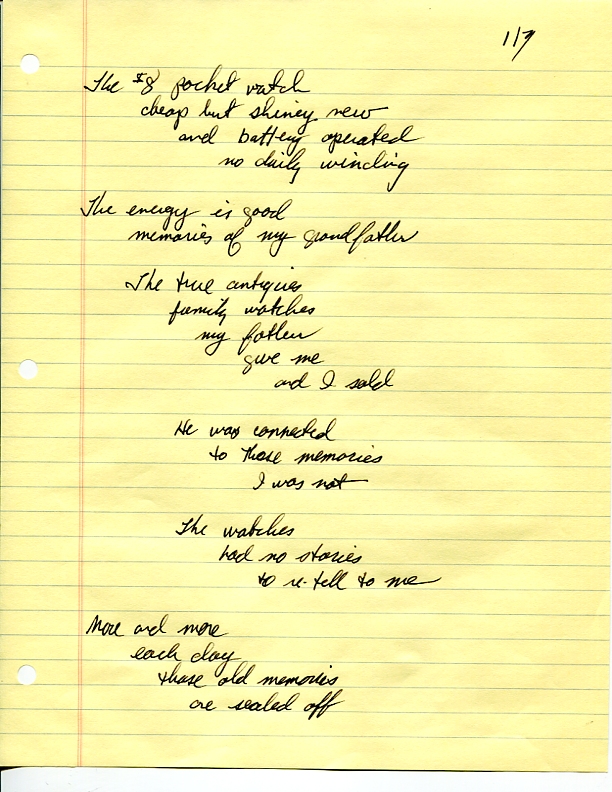 1/7
The $8 pocket watch
cheap but shiney new
and battery operated
no daily winding
The energy is good
memories of my grandfather
The true antiques
family watches
my father
give me
and I sold
He was connected
to those memories
I was not
The watches
had no stories
to re-tell to me
More and more
each day
those old memories
are sealed off